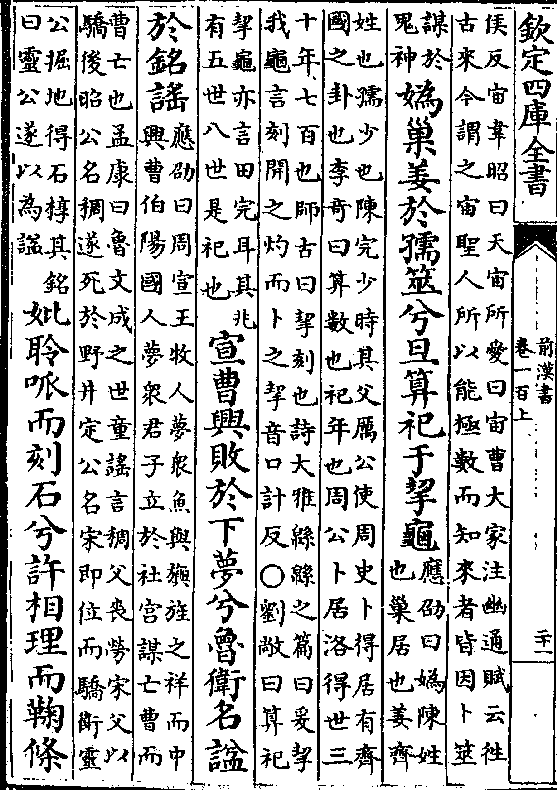 欽定四庫全書
前漢書
卷一百上
二十一
侯反宙韋昭曰天宙所愛曰宙曹大家注幽通賦云徃
古來今謂之宙聖人所以能極數而知來者皆因卜筮
謀於
鬼神
媯巢姜於孺筮兮旦算祀于挈龜
應劭曰媯陳姓
也巢居也姜齊
姓也孺少也陳完少時其父厲公使周史卜得居有齊
國之卦也李奇曰算數也祀年也周公卜居洛得世三
十年七百也師古曰挈刻也詩大雅緜緜之篇曰爰挈
我龜言刻開之灼而卜之挈音口計反○劉敞曰算祀
挈龜亦言田完耳其兆
有五世八世是祀也
宣曹興敗於下夢兮魯衛名諡
於銘謡
應劭曰周宣王牧人夢衆魚與旟旐之祥而中
興曹伯陽國人夢衆君子立於社宫謀亡曹而
曹亡也孟康曰魯文成之世童謡言稠父喪勞宋父以
驕後昭公名稠遂死於野井定公名宋即位而驕衛靈
公掘地得石椁其銘
曰靈公遂以為諡
妣聆呱而刻石兮許相理而鞠條